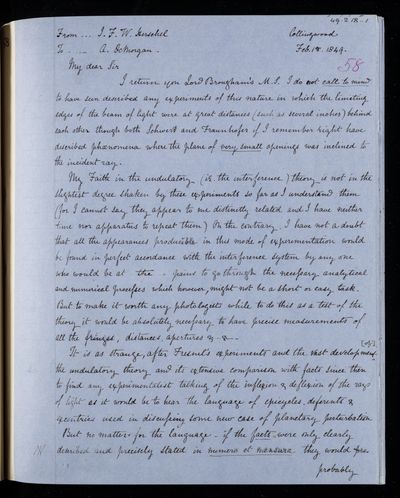 49.2.18-1
From ... J. F. W. Herschel Collingwood
To ... A. DeMorgan. Feb. 18. 1849.
58
My dear Sir
I return you Lord Brougham's M.S. I do not call to mind
to have seen described any experiments of this nature in which the limiting
edges of the beam of light were at great distances (such as several inches) behind
each other though both Schwerd and Fraunhofer if I remember right have
described phænomena where the plane of very small openings was inclined to
the incident ray.
My Faith in the undulatory (ie. the interference) theory is not in the
slightest degree shaken by these experiments so far as I understand them
(for I cannot say they appear to me distinctly related and I have neither
time nor apparatus to repeat them) On the contrary, I have not a doubt
that all the appearances producible in this mode of experimentation would
be found in perfect accordance with the interference system by any one
who would be at the pains to go through the necessary analytical
and numerical processes which however, might not be a short or easy task.
But to make it worth any photologists while to do this as a test of the
theory it would be absolutely necessary to have precise measurements of
all the fringes, distances, apertures & - & -
[of]
It is as strange, after Fresnel's experiments and the vast development
the undulatory theory and its extensive comparison with facts since then
to find any experimentalist talking of the inflexion & deflexion of the rays
of light as it would be to hear the language of epicycles, deferents &
excentrics used in discussing some new case of planetary perturbation
But no matter for the language - if the facts were only clearly
described and precisely stated in numero et mensura they would
probably